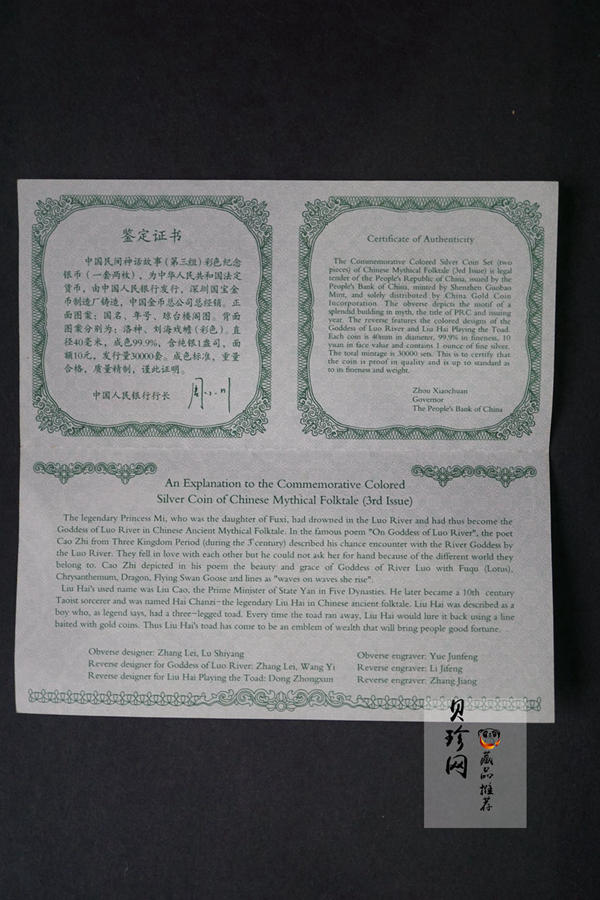 鉴定证书
中国民间神话故事（第三组）彩色纪念
银币（一套两枚），为中华人民共和国法定
货币，由中国人民银行发行，深圳国宝金
币制造厂铸造，中国金币总公司总经销。正
面图案：国名、年号、琼台楼阁图。背面
图案分别为：洛神、刘海戏蟾（彩色）。直
径40毫米，成色99.9%，含纯银1盎司，面
额10元，发行量30000套。成色标准，重量
合格，质量精制，谨此证明。
中国人民银行行长
Certificate of Authenticity
The Commemorative Colored Silver Coin Set (two
pieces) of Chinese Mythical Folktale (3rd Issue) is legal
tender of the People's Republic of China, issued by the
People's Bank of China, minted by Shenzhen Guobao
Mint, and solely distributed by China Gold Coin
Incorporation. The obverse depicts the motif of a
splendid building in myth, the title of PRC and issuing
year. The reverse features the colored designs of the
Goddess of Luo River and Liu Hai Playing the Toad.
Each coin is 40mm in diameter, 99.9% in fineness, 10
yuan in face value and contains 1 ounce of fine silver.
The total mintage is 30000 sets. This is to certify that
the coin is proof in quality and is up to standard as
to in fineness and weight.
Zhou Xiaochuan
Governor
The People's Bank of China
An Explanation to the Commemorative Colored
Silver Coin of Chinese Mythical Folktale (3rd Issue)
The legendary Princess Mi, who was the daughter of Fuxi, had drowned in the Luo River and had thus become the
Goddess of Luo River in Chinese Ancient Mythical Folktale. In the famous poem "On Goddess of Luo River", the poet
Cao Zhi from Three Kingdom Period (during the 3 century) described his chance encounter with the River Goddess by
the Luo River. They fell in love with each other but he could not ask her for hand because of the different world they
belong to. Cao Zhi depicted in his poem the beauty and grace of Goddess of River Luo with Fuqu (Lotus),
Chrysanthemum, Dragon, Flying Swan Goose and lines as "waves on waves she rise".
Liu Hai's used name was Liu Cao, the Prime Minister of State Yan in Five Dynasties. He later became a 10th century
Taoist sorcerer and was named Hai Chanzi-the legendary Liu Hai in Chinese ancient folktale. Liu Hai was described as a
boy who, as legend says, had a three-legged toad. Every time the toad ran away, Liu Hai would lure it back using a line
baited with gold coins. Thus Liu Hai's toad has come to be an emblem of wealth that will bring people good fortune.
Obverse designer: Zhang Lei, Lu Shiyang
Reverse designer for Goddess of Luo River: Zhang Lei, Wang Yi
Reverse designer for Liu Hai Playing the Toad: Dong Zhongxun
Obverse engraver: Yue Junfeng
Reverse engraver: Li Jifeng
Reverse engraver: Zhang Jiang
贝珍网
藏品推荐